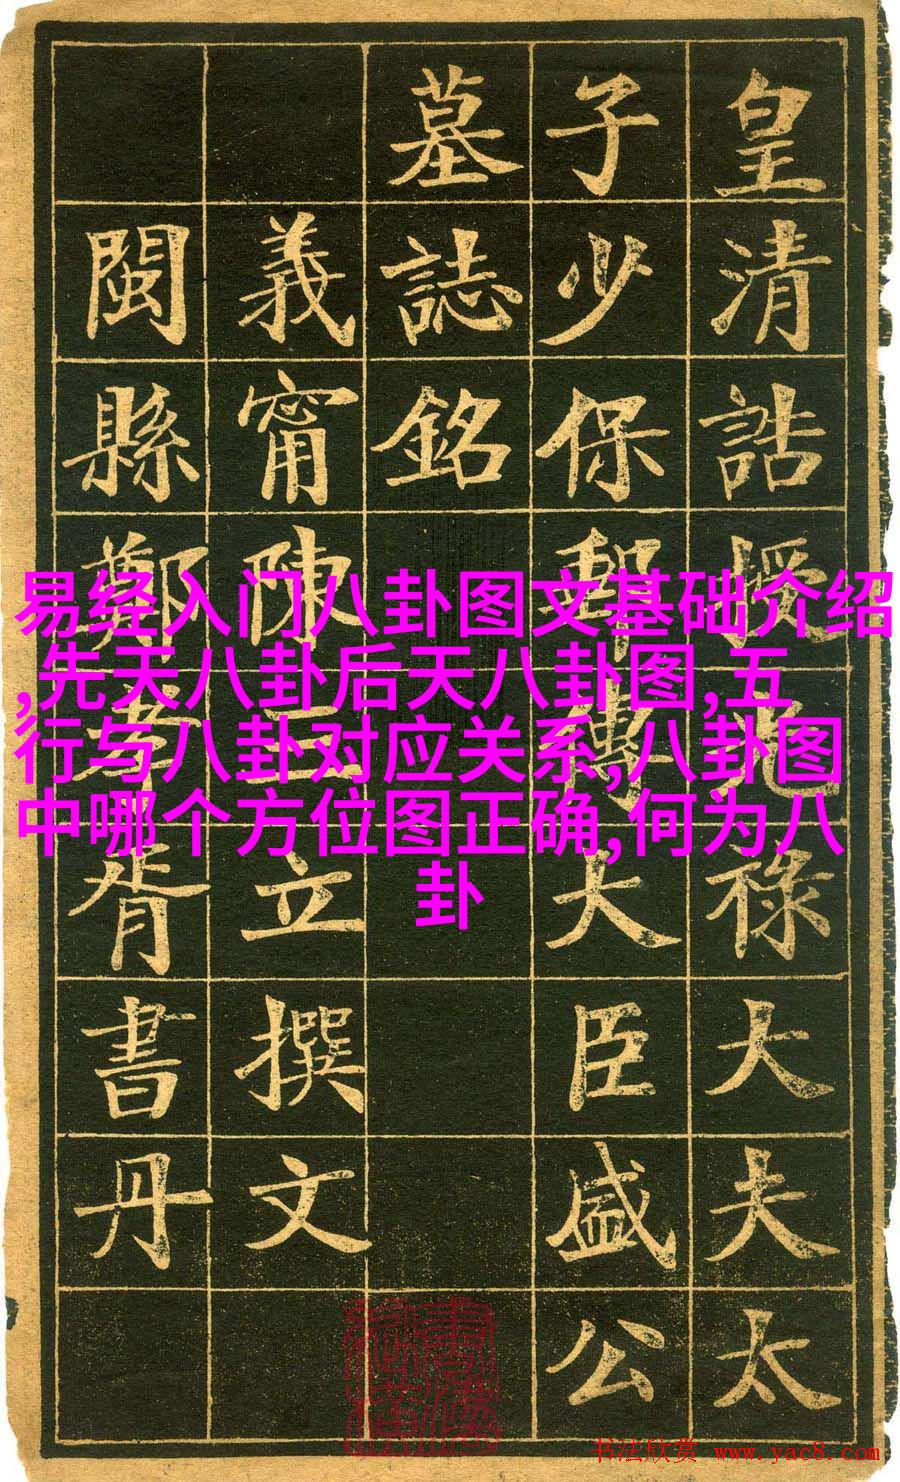 皇清誥授光祿大夫太
子少保郵傳大臣盛公
墓誌銘
義甯陳三立撰文
閩縣鄭孝胥書丹
易经入门八卦图文基础介绍
,先天八卦后天八卦图,五
行与八卦对应关系,八卦图
中哪个方位图正确,何为八
卦
书法欣赏 www.yac8.com